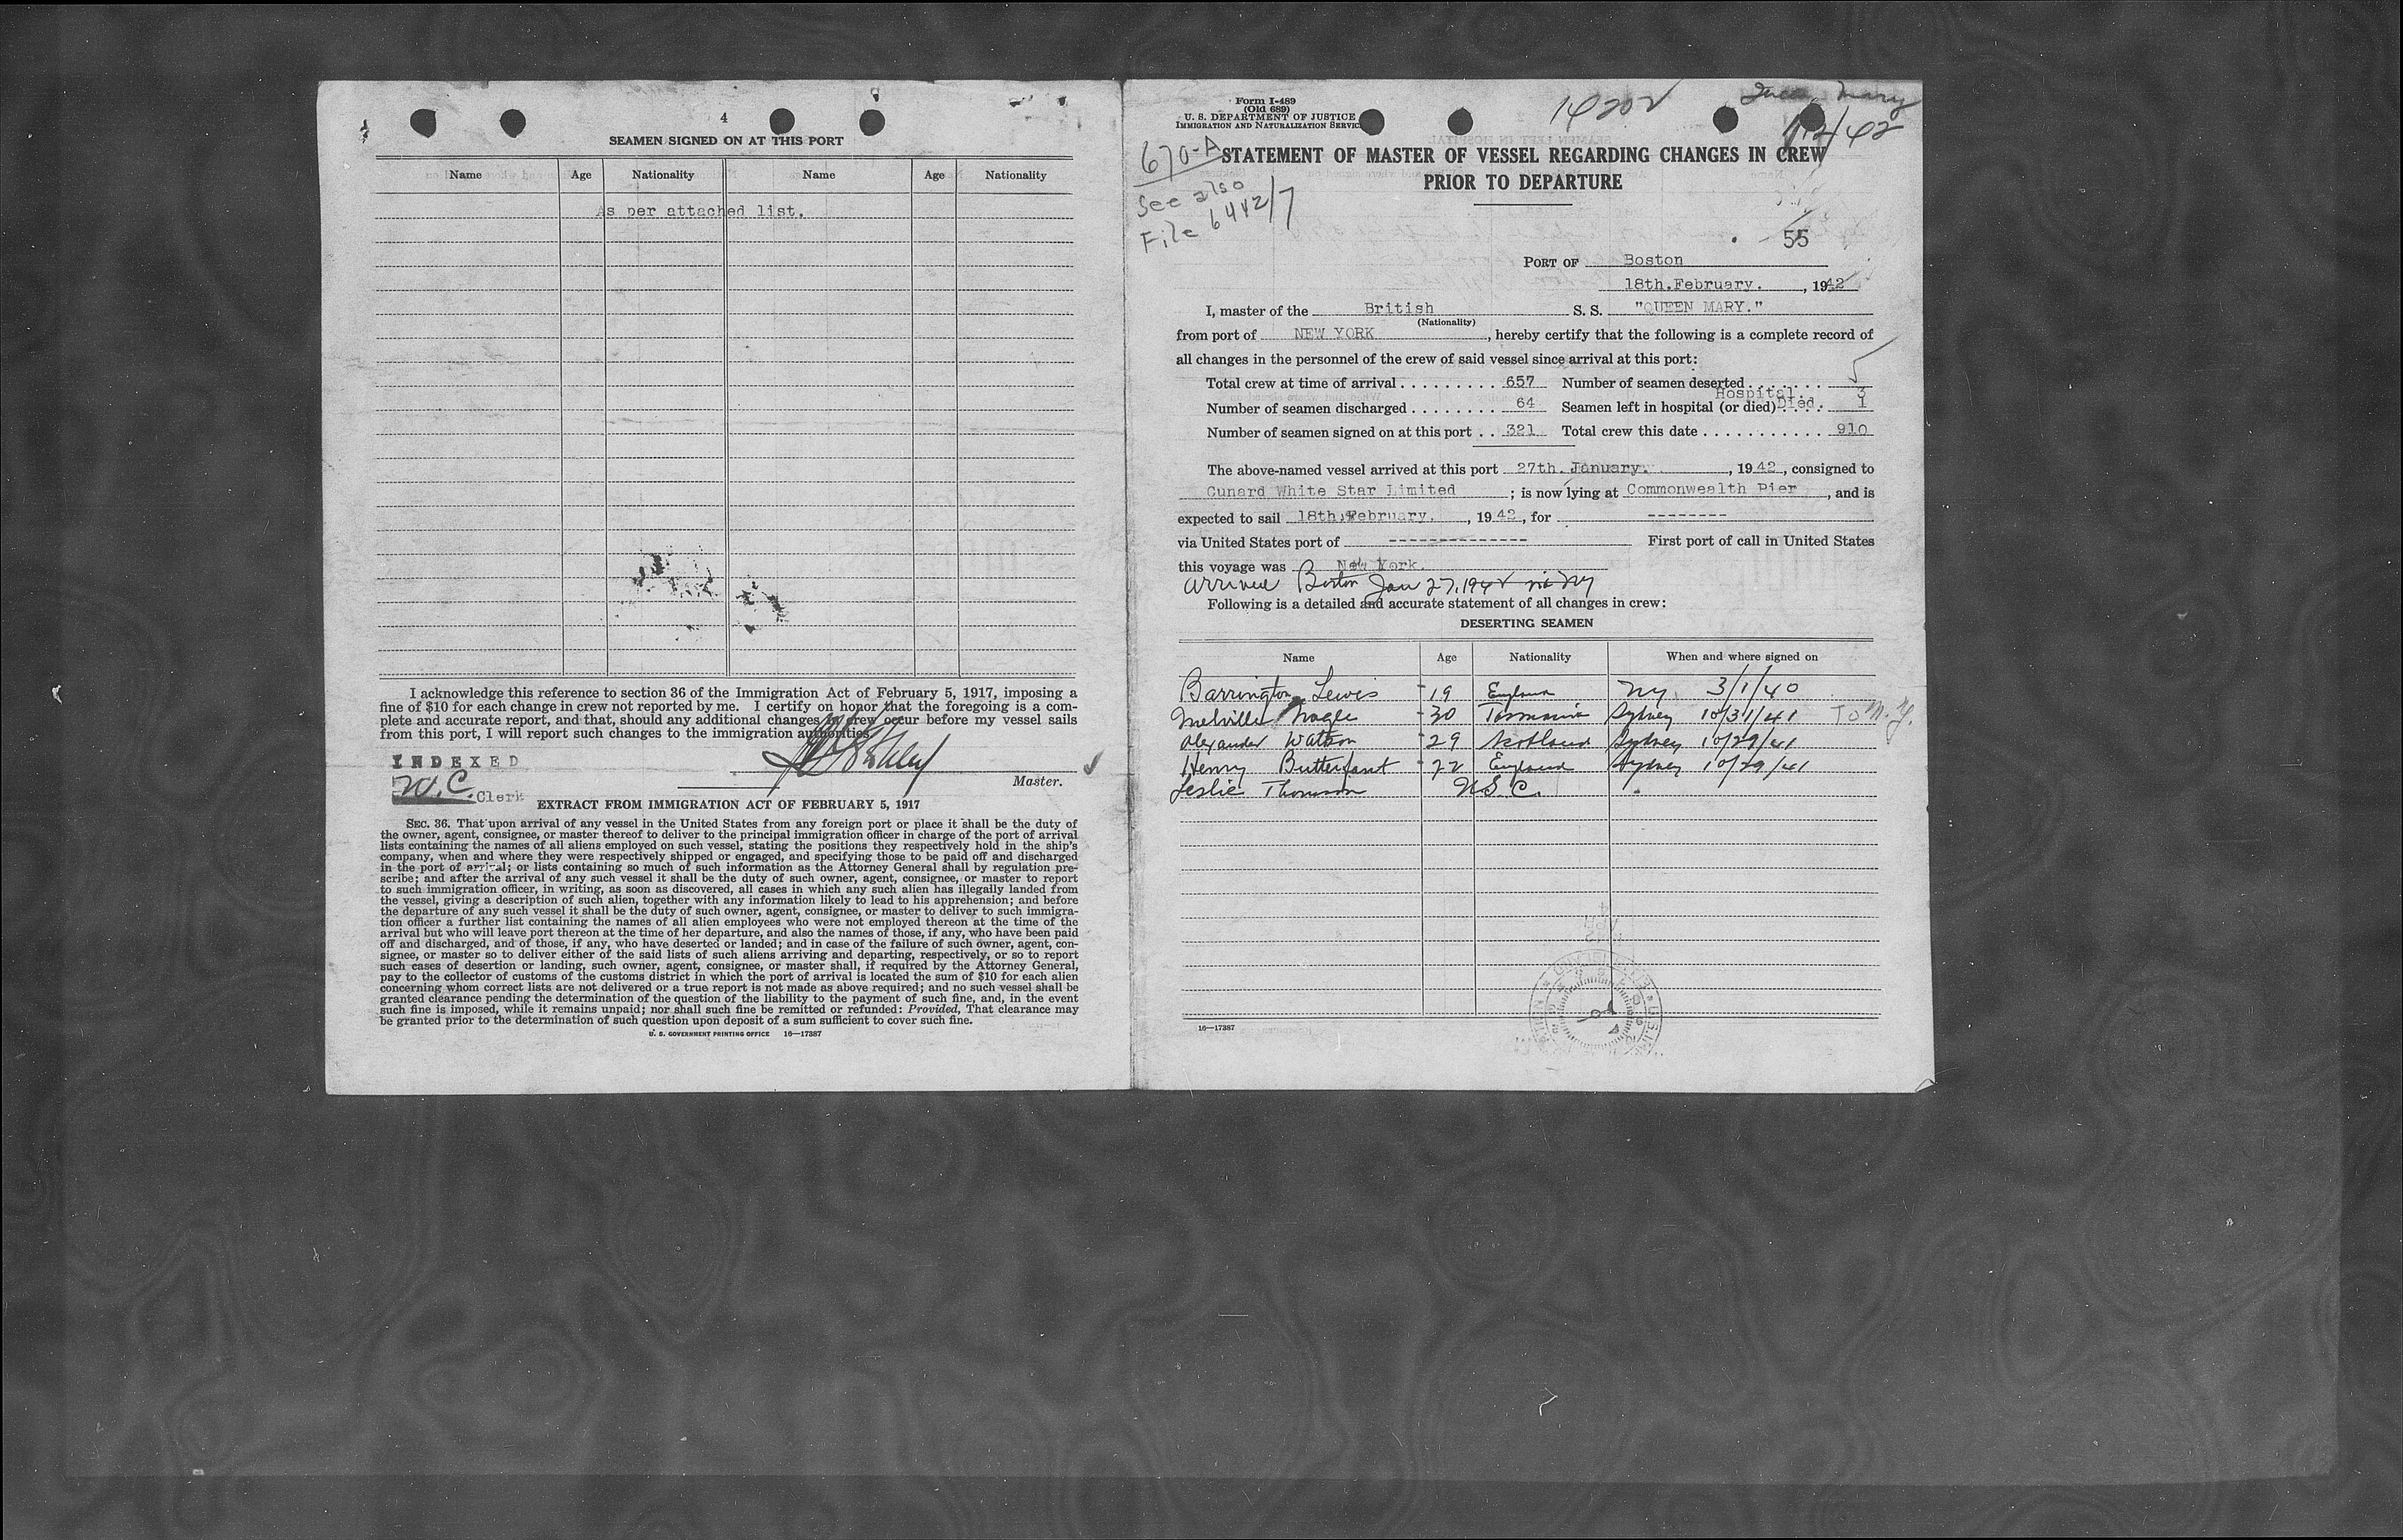 4
SEAMEN SIGNED ON AT THIS PORT
Name Age Nationality Name Age Nationality
As per attached list.
I acknowledge this reference to section 36 of the Immigration Act of February 5, 1917, imposing a
fine of $10 for each change in crew not reported by me. I certify on honor that the foregoing is a com-
plete and accurate report, and that, should any additional changes in crew occur before my vessel sails
from this port, I will report such changes to the immigration authorities.
INDEXED
W.C. Clerk
Master.
EXTRACT FROM IMMIGRATION ACT OF FEBRUARY 5, 1917
SEC. 36. That upon arrival of any vessel in the United States from any foreign port or place it shall be the duty of
the owner, agent, consignee, or master thereof to deliver to the principal immigration officer in charge of the port of arrival
lists containing the names of all aliens employed on such vessel, stating the positions they respectively hold in the ship's
company, when and where they were respectively shipped or engaged, and specifying those to be paid off and discharged
in the port of arrival; or lists containing so much of such information as the Attorney General shall by regulation pre-
scribe; and after the arrival of any such vessel it shall be the duty of such owner, agent, consignee, or master to report
to such immigration officer, in writing, as soon as discovered, all cases in which any such alien has illegally landed from
the vessel, giving a description of such alien, together with any information likely to lead to his apprehension; and before
the departure of any such vessel it shall be the duty of such owner, agent, consignee, or master to deliver to such immigra-
tion officer a further list containing the names of all alien employees who were not employed thereon at the time of the
arrival but who will leave port thereon at the time of her departure, and also the names of those, if any, who have been paid
off and discharged, and of those, if any, who have deserted or landed; and in case of the failure of such owner, agent, con-
signee, or master so to deliver either of the said lists of such aliens arriving and departing, respectively, or so to report
such cases of desertion or landing, such owner, agent, consignee, or master shall, if required by the Attorney General,
pay to the collector of customs of the customs district in which the port of arrival is located the sum of $10 for each alien
concerning whom correct lists are not delivered or a true report is not made as above required; and no such vessel shall be
granted clearance pending the determination of the question of the liability to the payment of such fine, and, in the event
such fine is imposed, while it remains unpaid; nor shall such fine be remitted or refunded: Provided, That clearance may
be granted prior to the determination of such question upon deposit of a sum sufficient to cover such fine.
U. S. GOVERNMENT PRINTING OFFICE 16—17387
Form I-489
(Old 689)
U. S. DEPARTMENT OF JUSTICE
IMMIGRATION AND NATURALIZATION SERVICE
Queen Mary
670-A
STATEMENT OF MASTER OF VESSEL REGARDING CHANGES IN CREW
PRIOR TO DEPARTURE
See also
File 6442/7
55
PORT OF Boston
18th.February. , 1942
I, master of the British S. S. "QUEEN MARY."
(Nationality)
from port of NEW YORK , hereby certify that the following is a complete record of
all changes in the personnel of the crew of said vessel since arrival at this port:
Total crew at time of arrival . . . . . . . . . 657 Number of seamen deserted . . . . . . . 5
Hospital. 3
Number of seamen discharged . . . . . . . . 64 Seamen left in hospital (or died) Died. 1
Number of seamen signed on at this port . . 321 Total crew this date . . . . . . . . . . . 910
The above-named vessel arrived at this port 27th. January. , 1942, consigned to
Cunard White Star Limited ; is now lying at Commonwealth Pier , and is
expected to sail 18th.February. , 1942, for --------
via United States port of -------------- First port of call in United States
this voyage was New York.
arrived Boston Jan 27, 1942 via NY
Following is a detailed and accurate statement of all changes in crew:
DESERTING SEAMEN
Name Age Nationality When and where signed on
Barrington Lewis 19 England NY 3/1/40
Melville Nagle 30 Tasmania Sydney 10/31/41 To N.Y.
Alexander Watson 29 Scotland Sydney 10/29/41
Henry 22 England Sydney 10/29/41
Leslie Thomson U.S.C.
16—17387